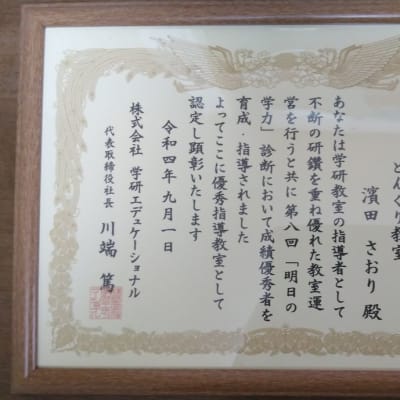 どんぐり教室
濱田 さおり 殿
あなたは学研教室の指導者として
不断の研鑽を重ね優れた教室運
営を行うと共に第八回「明日の
学力」診断において成績優秀者を
育成・指導されました
よってここに優秀指導教室として
認定し顕彰いたします
令和四年九月一日
株式会社 学研エデュケーショナル
代表取締役社長 川端 篤